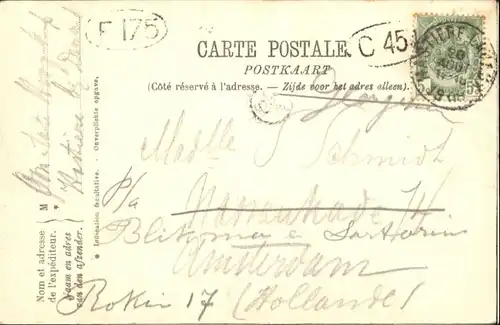 F 175
C 45
CARTE POSTALE.
POSTKAART
(Côté réservé à l'adresse. — Zijde voor het adres alleen.)
Madlle S Schmidt
p/a
Blikman en Sartorius
Amsterdam
Rokin 17 (Hollande)
M
Nom et adresse
de l'expéditeur.
Naam en adres
van den afzender.
* Indication facultative. - Onverplichte opgave.
Hastière